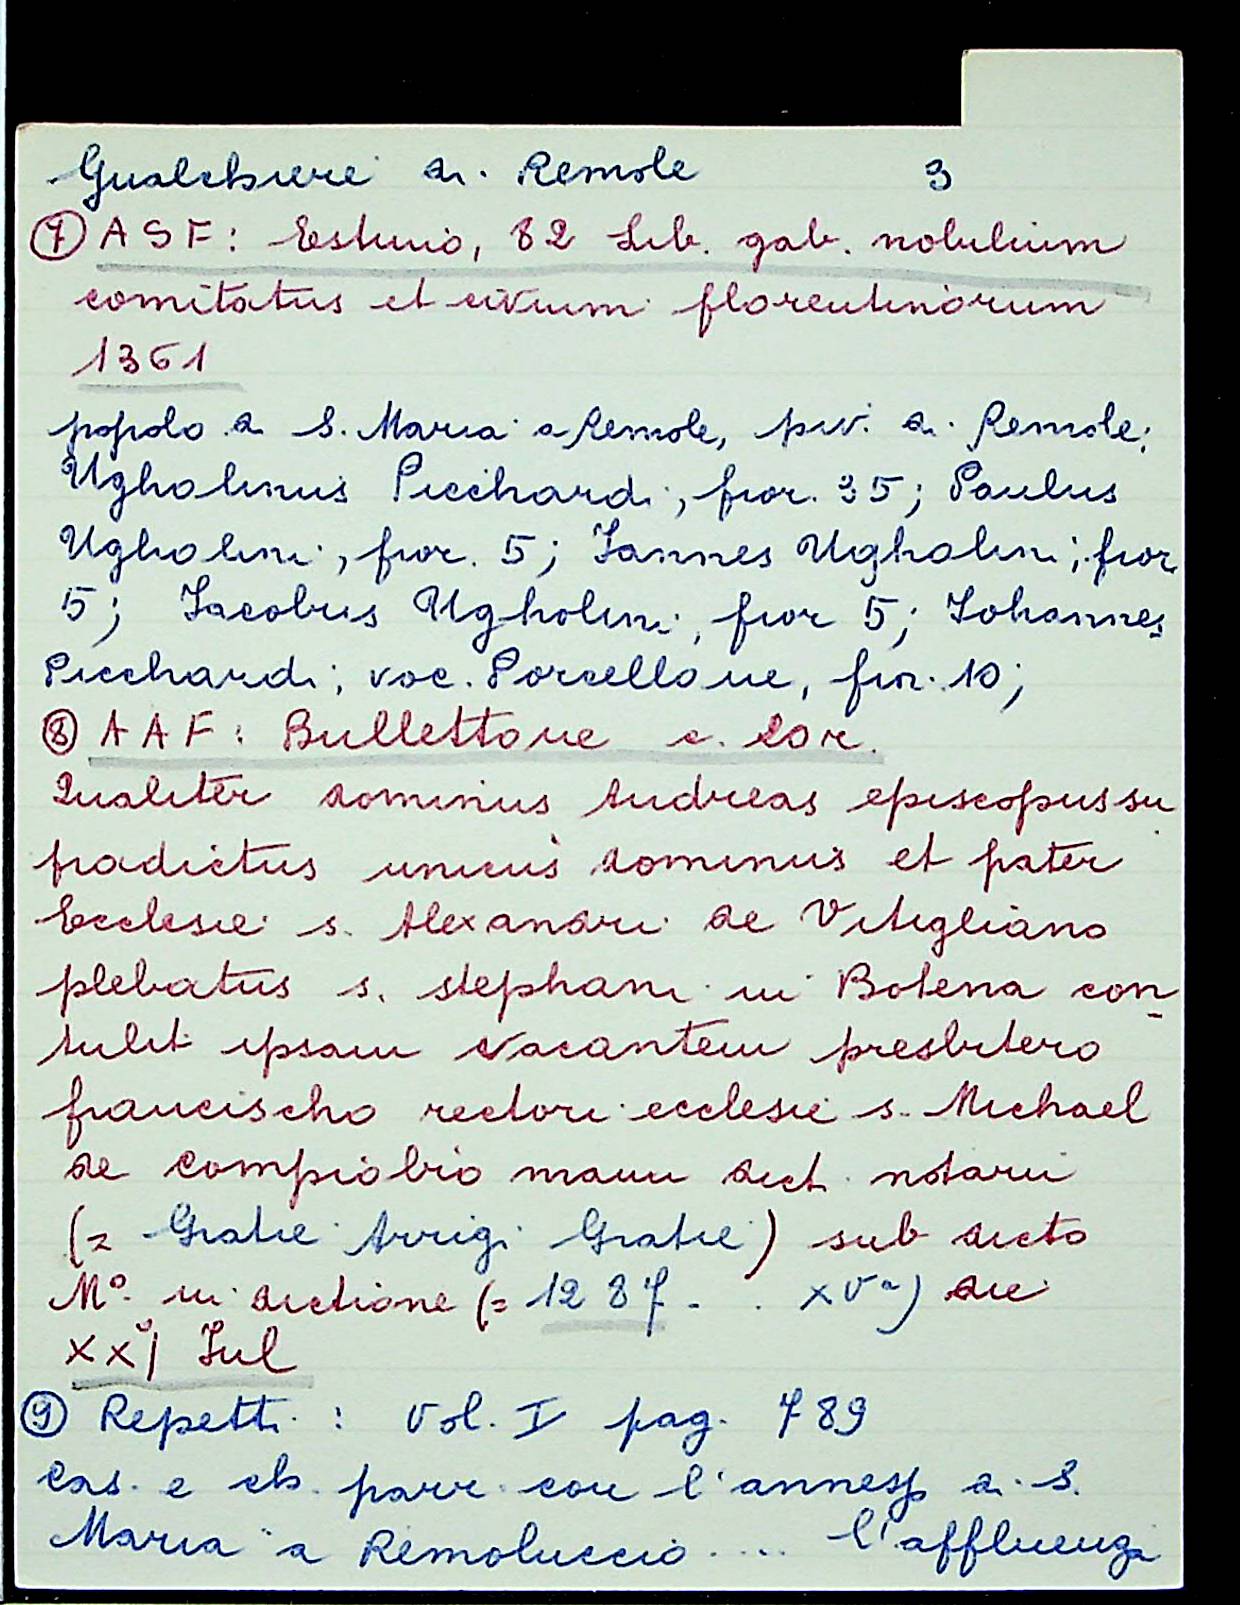 Gualchiere di Remole 3
⑦ ASF: Estimo, 82 Lib. gab. nobilium
comitatus et civium florentinorum
1361
popolo di S. Maria a Remole, piv. di Remole:
Ugholinus Picchardi, fior. 35; Paulus
Ugholini, fior. 5; Iannes Ugholini, fior.
5; Iacobus Ugholini, fior 5; Iohannes
Picchardi, voc. Porcellone, fior. 10;
⑧ AAF: Bullettone c. 20r.
Qualiter dominus Andreas episcopus su
pradictus unicus dominus et pater
Ecclesie s. Alexandri de Vitigliano
plebatus s. Stephani in Botena con
tulit ipsam vacantem presbitero
francischo rectori ecclesie s. Michael
de Compiobio manu dict. notarii
(= Gratie Arrigi Gratie) sub dicto
M° indictione (= 1287 - . XVª) die
XXJ Iul
⑨ Repetti: vol. I pag. 789
Cas. e ch. parr. con l'annesso di S.
Maria a Remoluccio .... l'affluenza